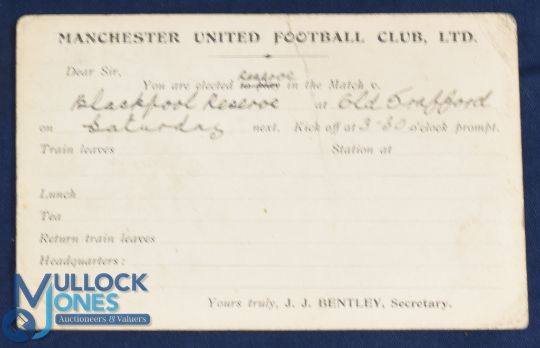 MANCHESTER UNITED FOOTBALL CLUB, LTD.
Dear Sir,
reserve
You are elected to play in the Match v.
Blackpool Reserve at Old Trafford
on Saturday next. Kick off at 3-30 o'clock prompt.
Train leaves Station at
Lunch
Tea
Return train leaves
Headquarters:
Yours truly, J. J. BENTLEY, Secretary.
MULLOCK
JONES
Auctioneers & Valuers